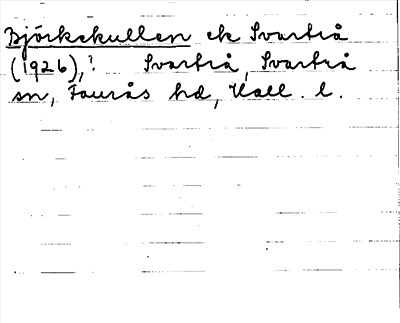 Björkekullen ek Svartrå
(1926),? Svartrå, Svartrå
sn, Faurås hd, Hall. l.